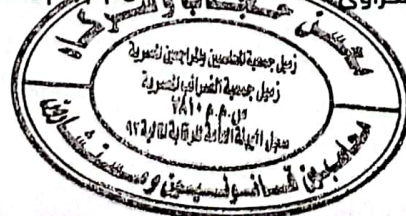 حراوى
زميل جمعية المحاسبين والمراجعين المصرية
زميل جمعية الضرائب المصرية
س.م.م ٧٨١٠
سجل الهيئة العامة للرقابة المالية ٩٢
محاسبون قانونيون ومستشارون